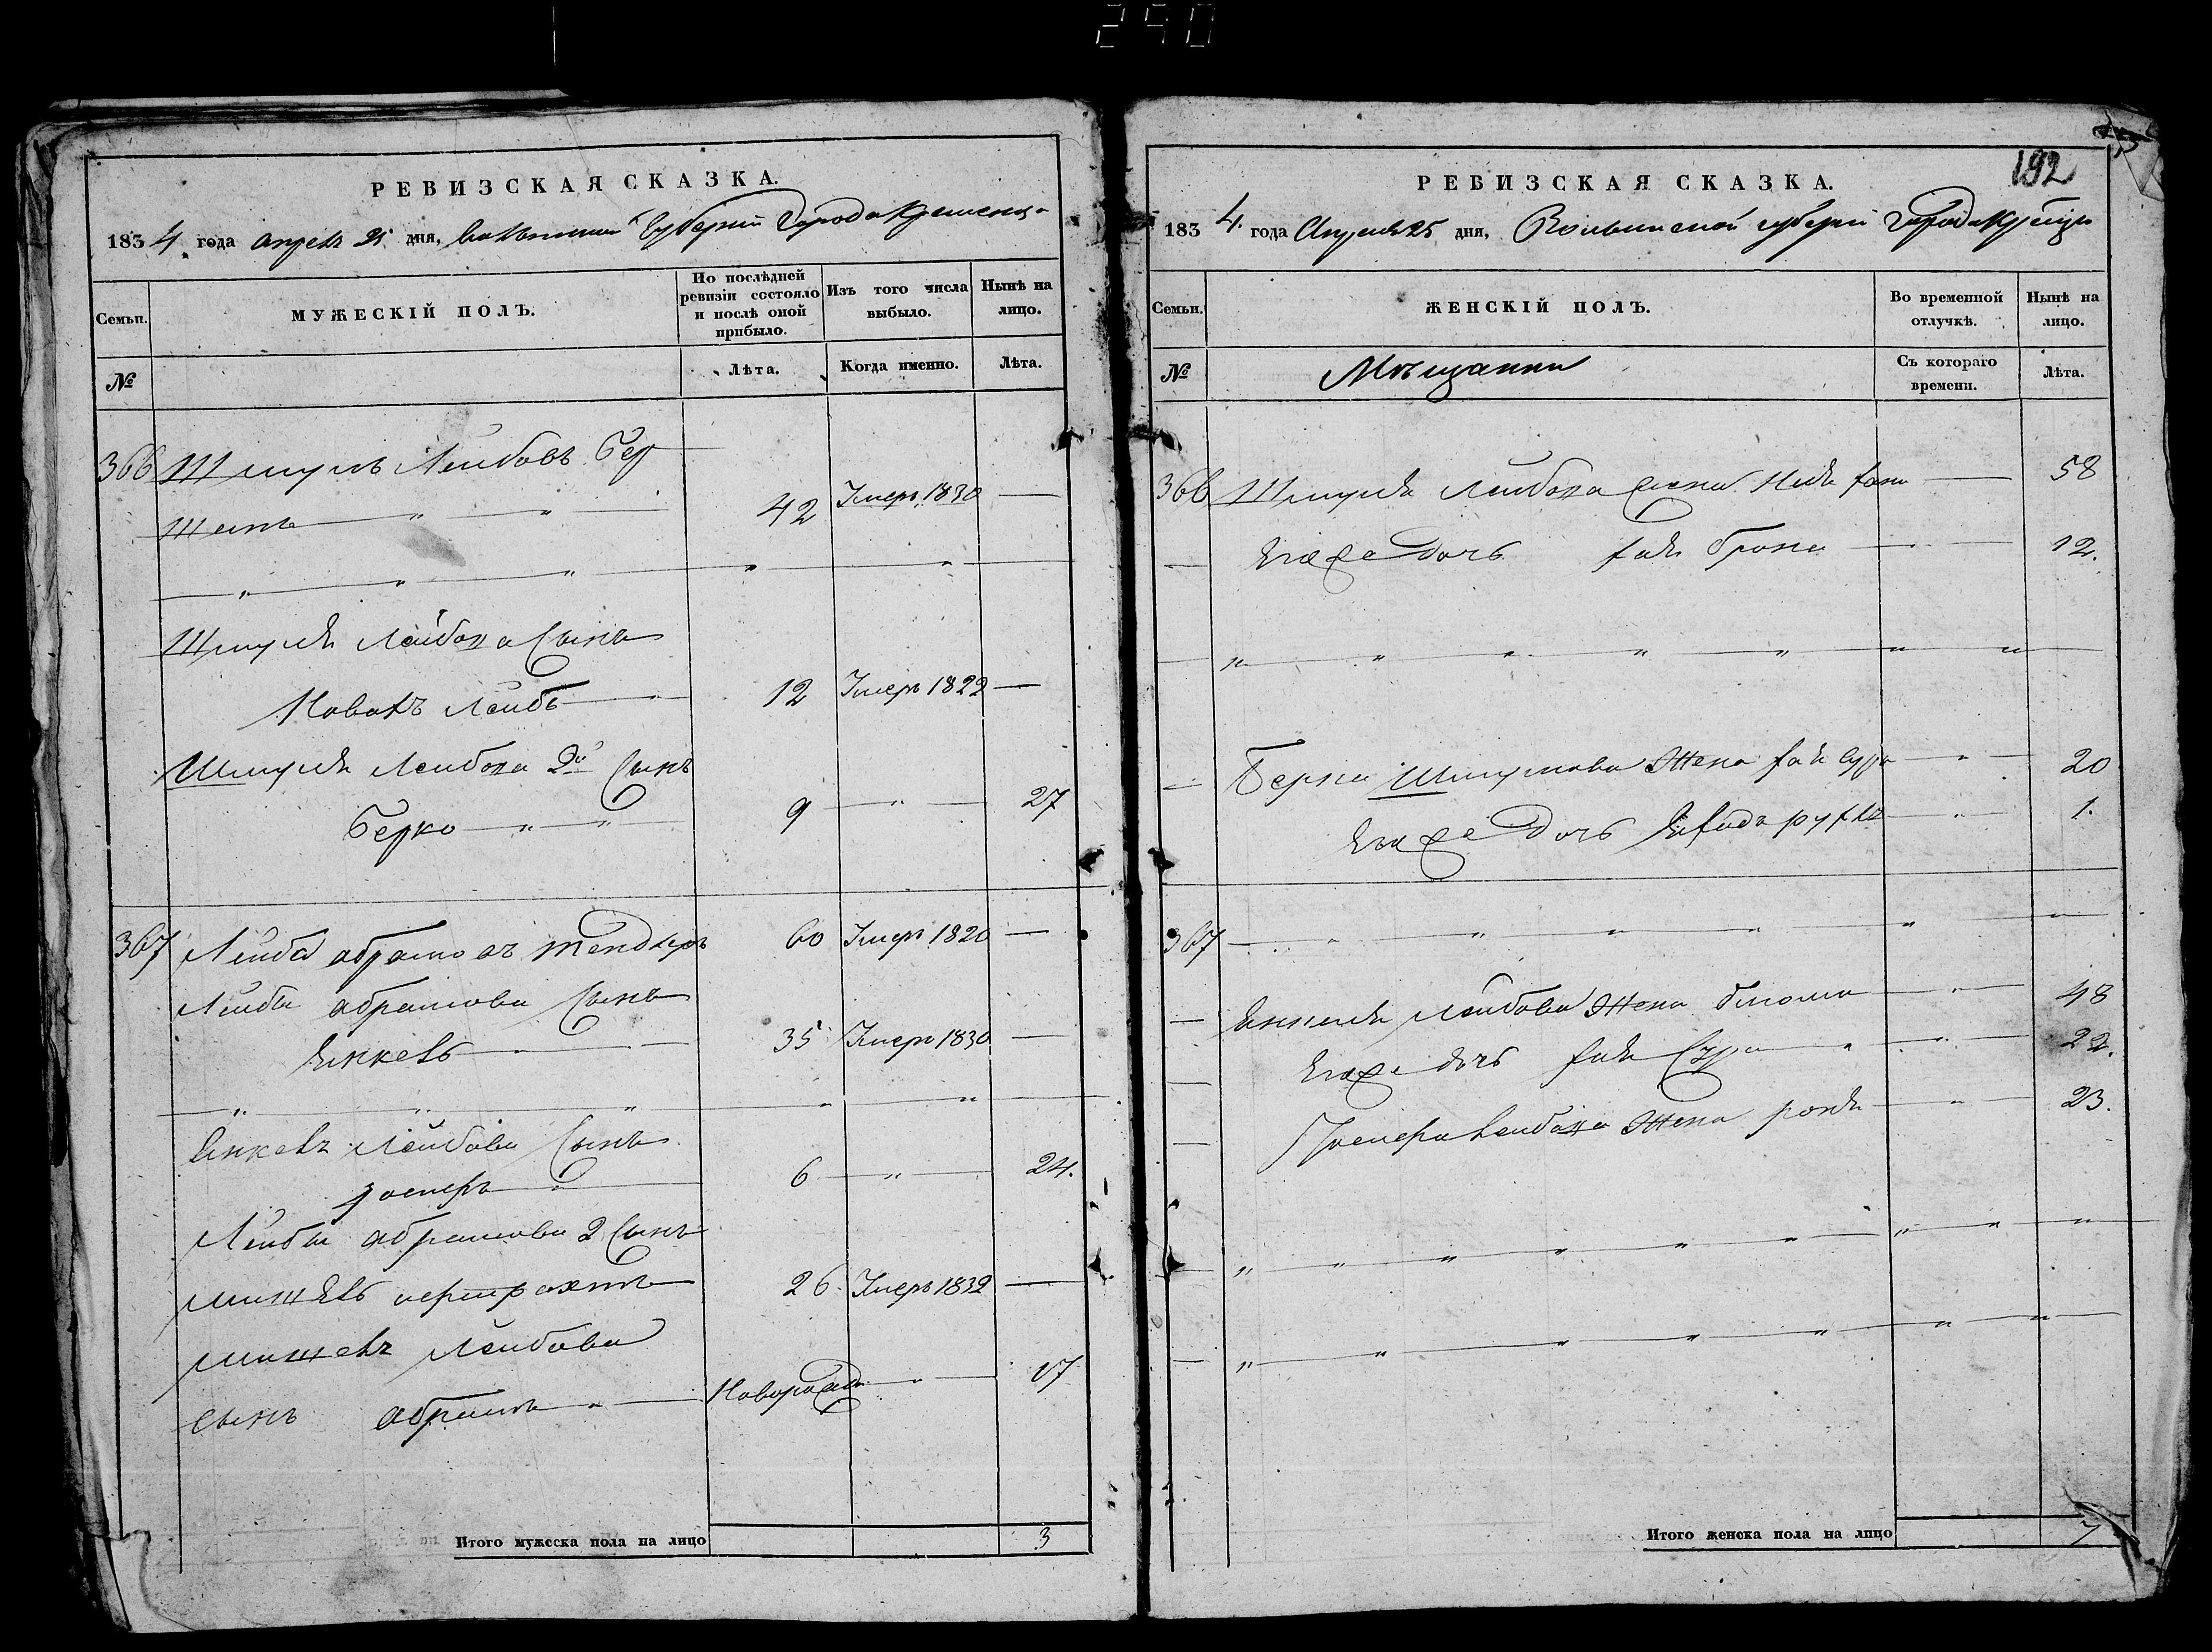 290
РЕВИЗСКАЯ СКАЗКА.
1834 года апреля 25 дня, Волынской Губернии Города Кременца
Семьи.
МУЖЕСКІЙ ПОЛЪ.
По послѣдней ревизіи состояло и послѣ оной прибыло.
Изъ того числа выбыло.
Нынѣ на лицо.
№
Лѣта.
Когда именно.
Лѣта.
366 Шмуль Лейбовъ Бер
штень 42 Умеръ 1830
Шмуля Лейбова Сынъ
Лейбъ 12 Умеръ 1822
Шмуля Лейбова 2й Сынъ
Берко 9 27
367 Лейба абрамовъ 60 Умеръ 1820
Лейбы абрамова Сынъ
Янкель 35 Умеръ 1830
Янкеля Лейбова Сынъ
6 24.
Лейбы абрамова 2 Сынъ
26 Умеръ 1832
Лейбова
сынъ абрамъ Новорожд 17
Итого мужеска пола на лицо 3
192
РЕВИЗСКАЯ СКАЗКА.
1834 года Апреля 25 дня, Волынской губернии города Кременца
Семьи.
ЖЕНСКІЙ ПОЛЪ.
Во временной отлучкѣ.
Нынѣ на лицо.
№
Мѣщанки
Съ котораго времени.
Лѣта.
366 Шмуля Лейбова жена 58
его же дочь 12.
Берка Шмулова Жена Сура 20
его же дочь 1.
367
Янкеля Лейбова Жена блюма 48
его же дочь Сура 22.
Лейбова Жена 23.
Итого женска пола на лицо 7